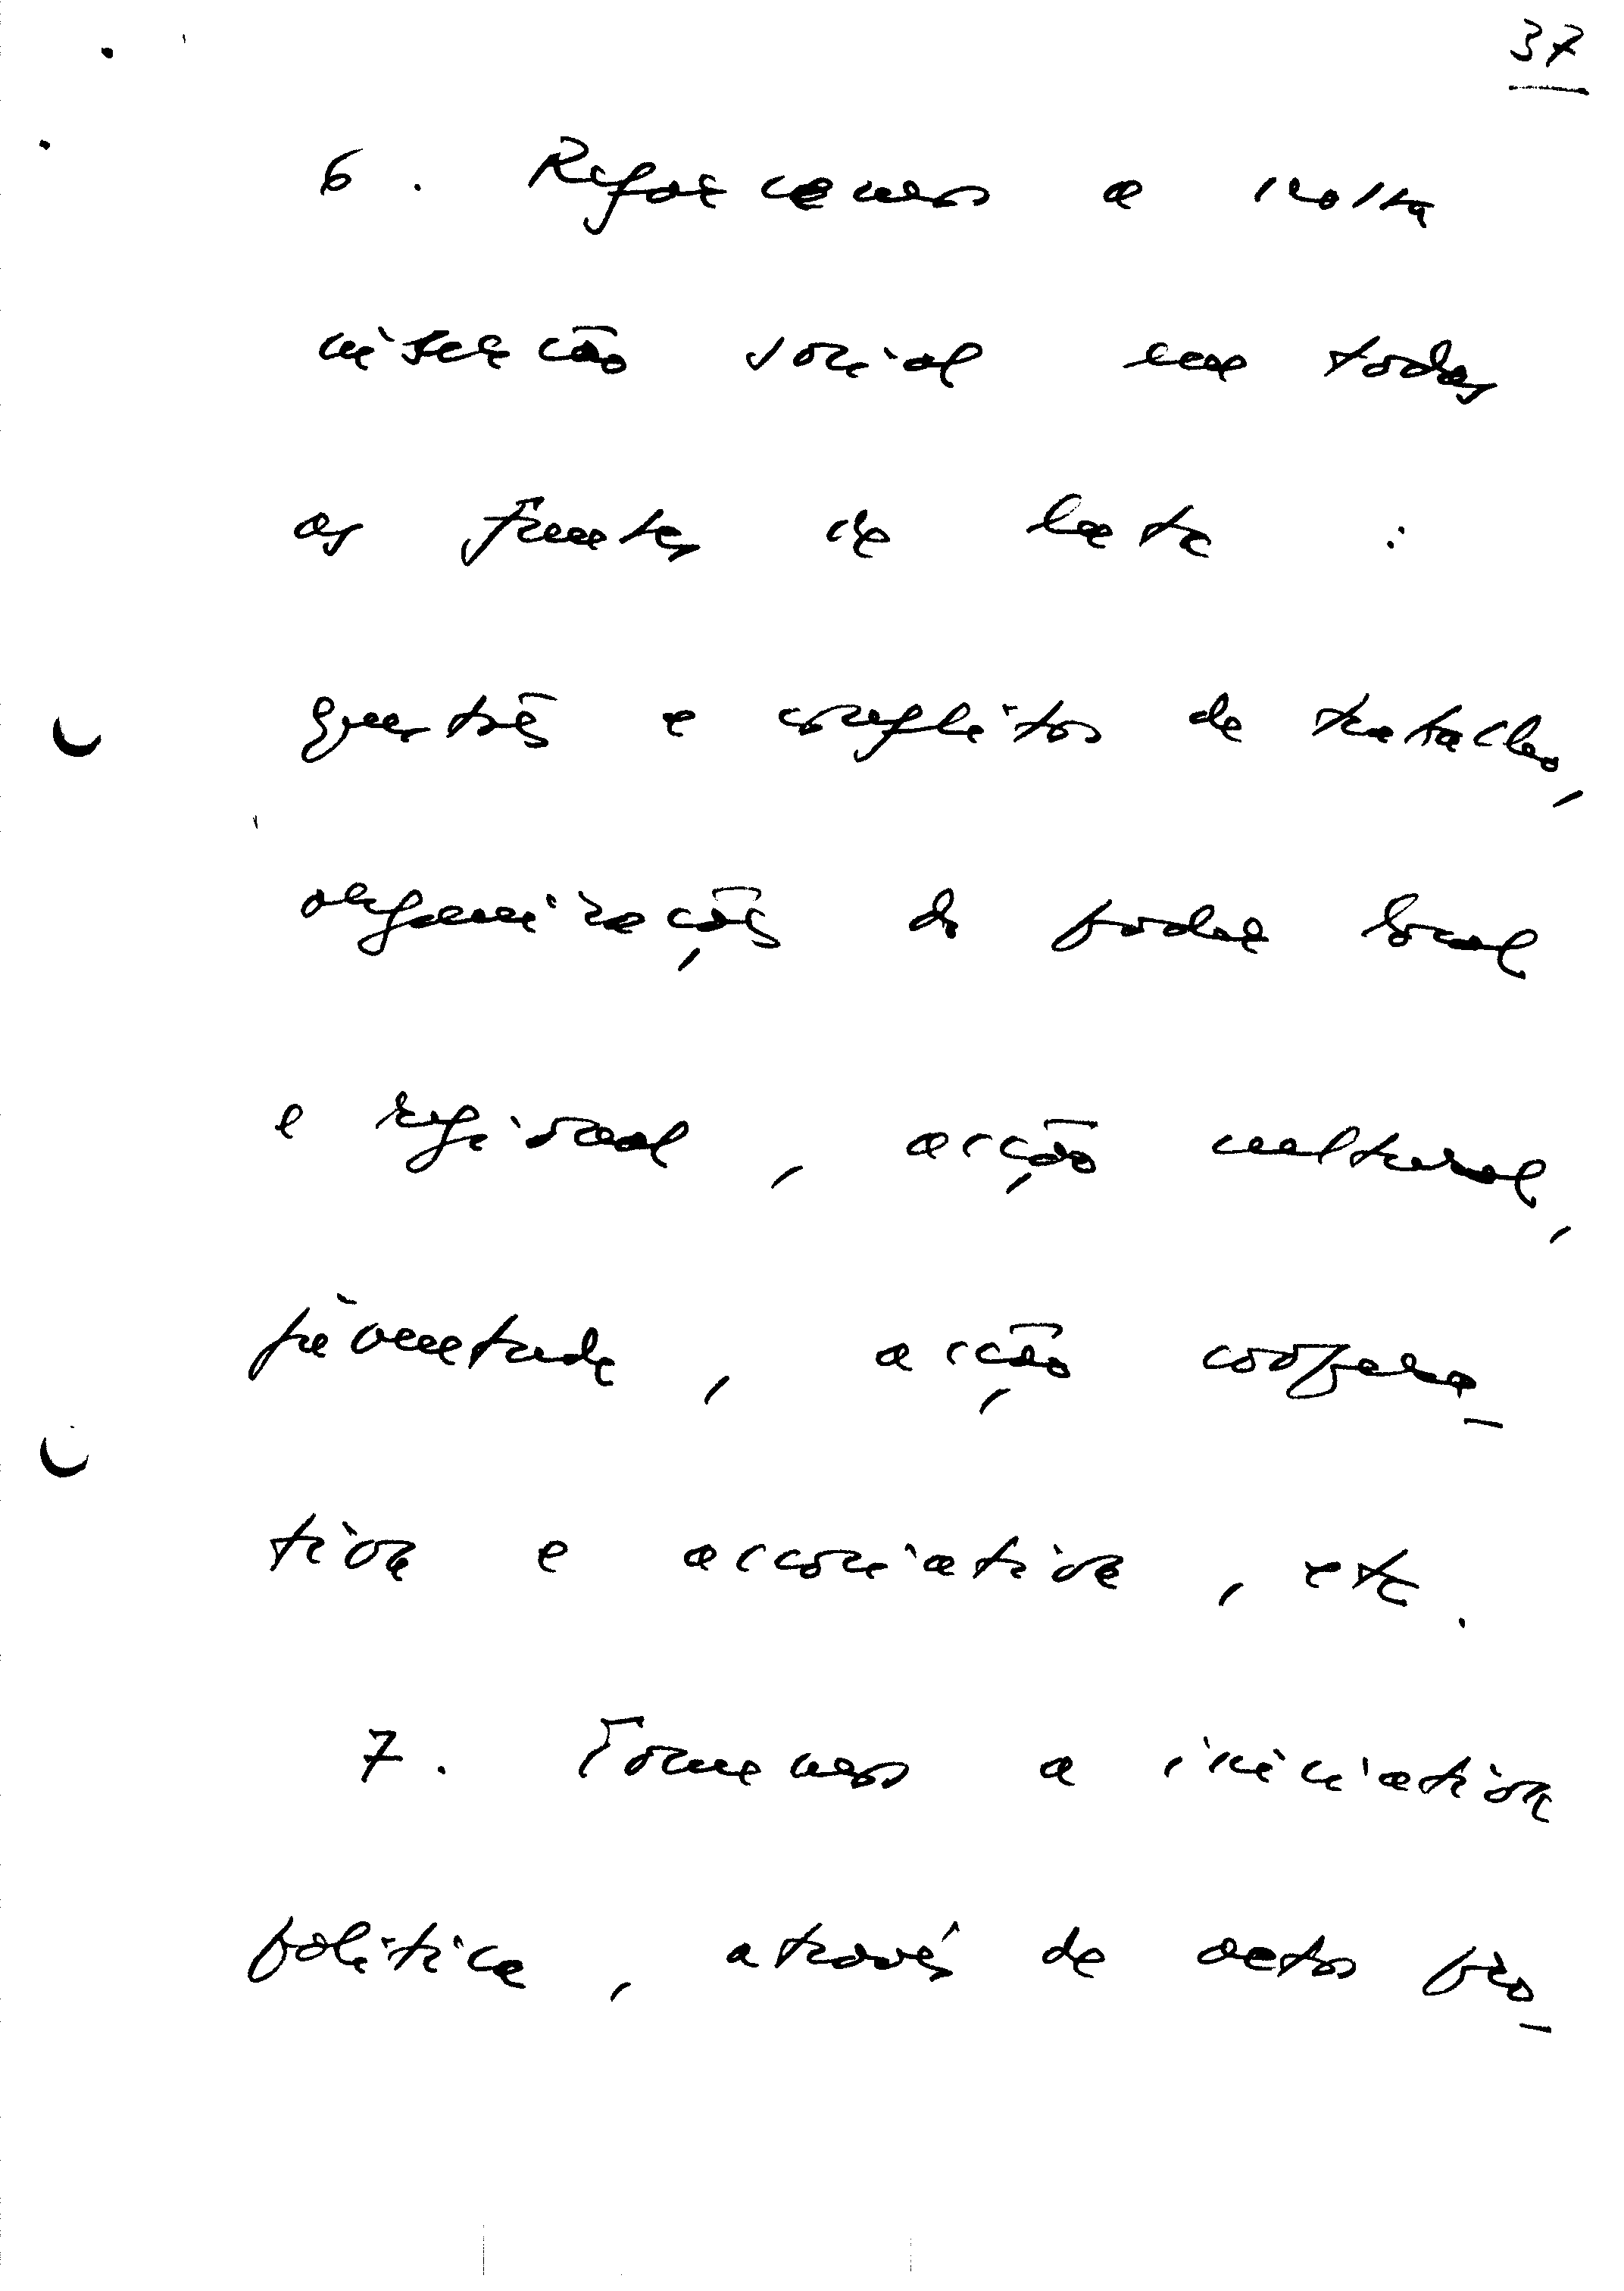 37
6. Reforcemos a nossa
inserção social em todas
as frentes de luta :
questões e conflitos de trabalho,
organizações do poder local
e regional, acção cultural,
juventude, acção coopera-
tiva e associativa, etc.
7. Tomemos a iniciativa
política, através de actos pro-